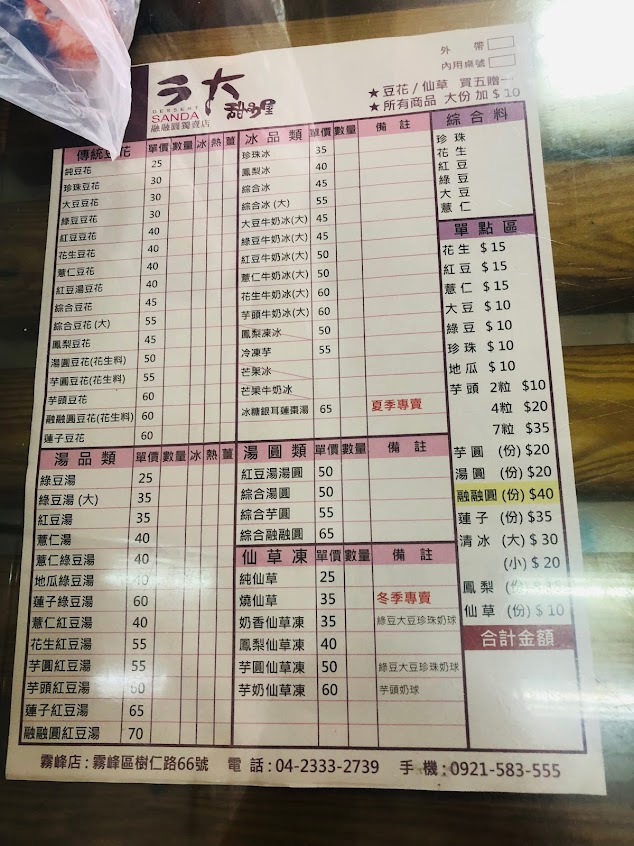 外 帶
內用桌號
ㄢ大
甜品屋
DESSERT
SANDA
融融圓獨賣店
★豆花/仙草 買五贈一
★所有商品 大份 加 $ 10
傳統豆花 單價 數量 冰 熱 薑
純豆花 25
珍珠豆花 30
大豆豆花 30
綠豆豆花 30
紅豆豆花 40
花生豆花 40
薏仁豆花 40
紅豆湯豆花 40
綜合豆花 45
綜合豆花 (大) 55
鳳梨豆花 45
湯圓豆花(花生料) 50
芋圓豆花(花生料) 55
芋頭豆花 60
融融圓豆花(花生料) 60
蓮子豆花 60
湯品類 單價 數量 冰 熱 薑
綠豆湯 25
綠豆湯 (大) 35
紅豆湯 35
薏仁湯 40
薏仁綠豆湯 40
地瓜綠豆湯 40
蓮子綠豆湯 60
薏仁紅豆湯 40
花生紅豆湯 55
芋圓紅豆湯 55
芋頭紅豆湯 60
蓮子紅豆湯 65
融融圓紅豆湯 70
冰品類 單價 數量 備註
珍珠冰 35
鳳梨冰 40
綜合冰 45
綜合冰 (大) 55
大豆牛奶冰(大) 45
綠豆牛奶冰(大) 45
紅豆牛奶冰(大) 50
薏仁牛奶冰(大) 50
花生牛奶冰(大) 60
芋頭牛奶冰(大) 60
鳳梨凍冰 50
冷凍芋 55
芒果冰
芒果牛奶冰
冰糖銀耳蓮棗湯 65 夏季專賣
湯圓類 單價 數量 備註
紅豆湯湯圓 50
綜合湯圓 50
綜合芋圓 55
綜合融融圓 65
仙草凍 單價 數量 備註
純仙草 25
燒仙草 35 冬季專賣
奶香仙草凍 35 綠豆大豆珍珠奶球
鳳梨仙草凍 40
芋圓仙草凍 50 綠豆大豆珍珠奶球
芋奶仙草凍 60 芋頭奶球
綜合料
珍珠
花生
紅豆
綠豆
大豆
薏仁
單點區
花生 $ 15
紅豆 $ 15
薏仁 $ 15
大豆 $ 10
綠豆 $ 10
珍珠 $ 10
地瓜 $ 10
芋頭 2粒 $10
4粒 $20
7粒 $35
芋圓 (份) $20
湯圓 (份) $20
融融圓 (份) $40
蓮子 (份) $35
清冰 (大) $ 30
(小) $ 20
鳳梨 (份)
仙草 (份) $ 10
合計金額
霧峰店 : 霧峰區樹仁路66號 電 話 : 04-2333-2739 手 機 : 0921-583-555